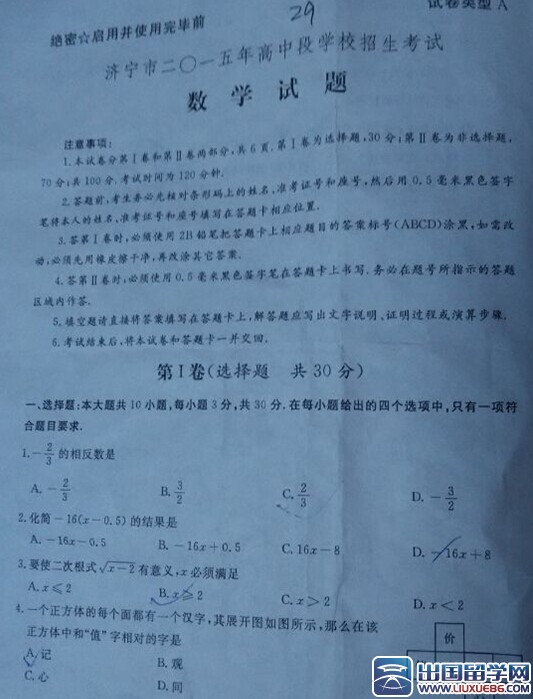 29
试卷类型 A
绝密☆启用并使用完毕前
济宁市二〇一五年高中段学校招生考试
数学试题
注意事项:
1.本试卷分第Ⅰ卷和第Ⅱ卷两部分,共6页.第Ⅰ卷为选择题,30分;第Ⅱ卷为非选择题,
70分;共100分.考试时间为120分钟.
2.答题前,考生务必先核对条形码上的姓名、准考证号和座号,然后用0.5毫米黑色签字
笔将本人的姓名、准考证号和座号填写在答题卡相应位置.
3.答第Ⅰ卷时,必须使用2B铅笔把答题卡上相应题目的答案标号(ABCD)涂黑,如需改
动,必须先用橡皮擦干净,再改涂其它答案.
4.答第Ⅱ卷时,必须使用0.5毫米黑色签字笔在答题卡上书写.务必在题号所指示的答题
区域内作答.
5.填空题请直接将答案填写在答题卡上,解答题应写出文字说明、证明过程或演算步骤.
6.考试结束后,将本试卷和答题卡一并交回.
第Ⅰ卷(选择题 共30分)
一、选择题:本大题共10小题,每小题3分,共30分.在每小题给出的四个选项中,只有一项符
合题目要求.
1.-2/3 的相反数是
A. -2/3 B. 3/2 C. 2/3 D. -3/2
2.化简-16(x-0.5)的结果是
A. -16x-0.5 B. -16x+0.5 C. 16x-8 D. -16x+8
3.要使二次根式√x-2有意义,x必须满足
A. x≤2 B. x≥2 C. x>2 D. x<2
4.一个正方体的每个面都有一个汉字,其展开图如图所示,那么在该
正方体中和“值”字相对的字是
价
A. 记 B. 观
C. 心 D. 间
出国留学网
www.liuxue86.com